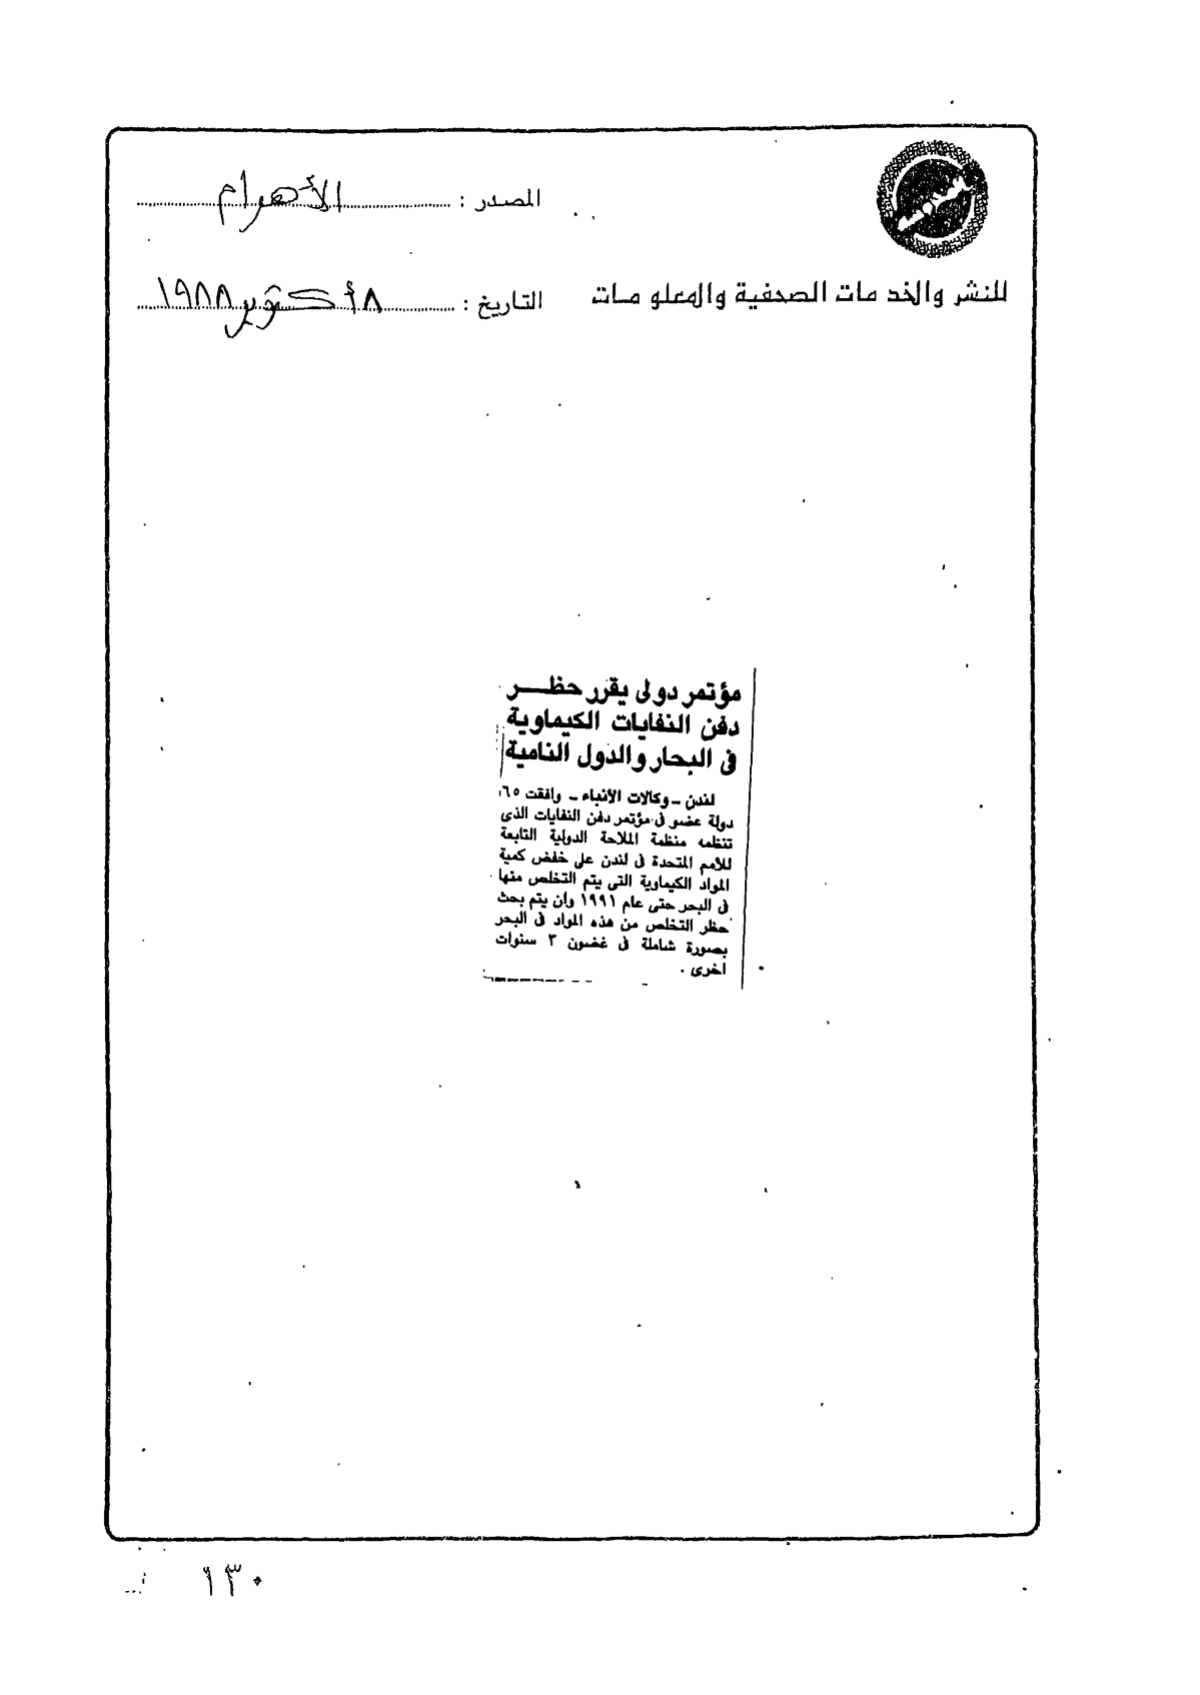 المصدر : الأهرام
للنشر والخدمات الصحفية والمعلومات
التاريخ : ٨ أكتوبر ١٩٨٨
مؤتمر دولى يقرر حظر
دفن النفايات الكيماوية
فى البحار والدول النامية
لندن - وكالات الأنباء - وافقت ٦٥
دولة عضو فى مؤتمر دفن النفايات الذى
تنظمه منظمة الملاحة الدولية التابعة
للأمم المتحدة فى لندن على خفض كمية
المواد الكيماوية التى يتم التخلص منها
فى البحر حتى عام ١٩٩١ وان يتم بحث
حظر التخلص من هذه المواد فى البحر
بصورة شاملة فى غضون ٣ سنوات
اخرى .
١٣٠